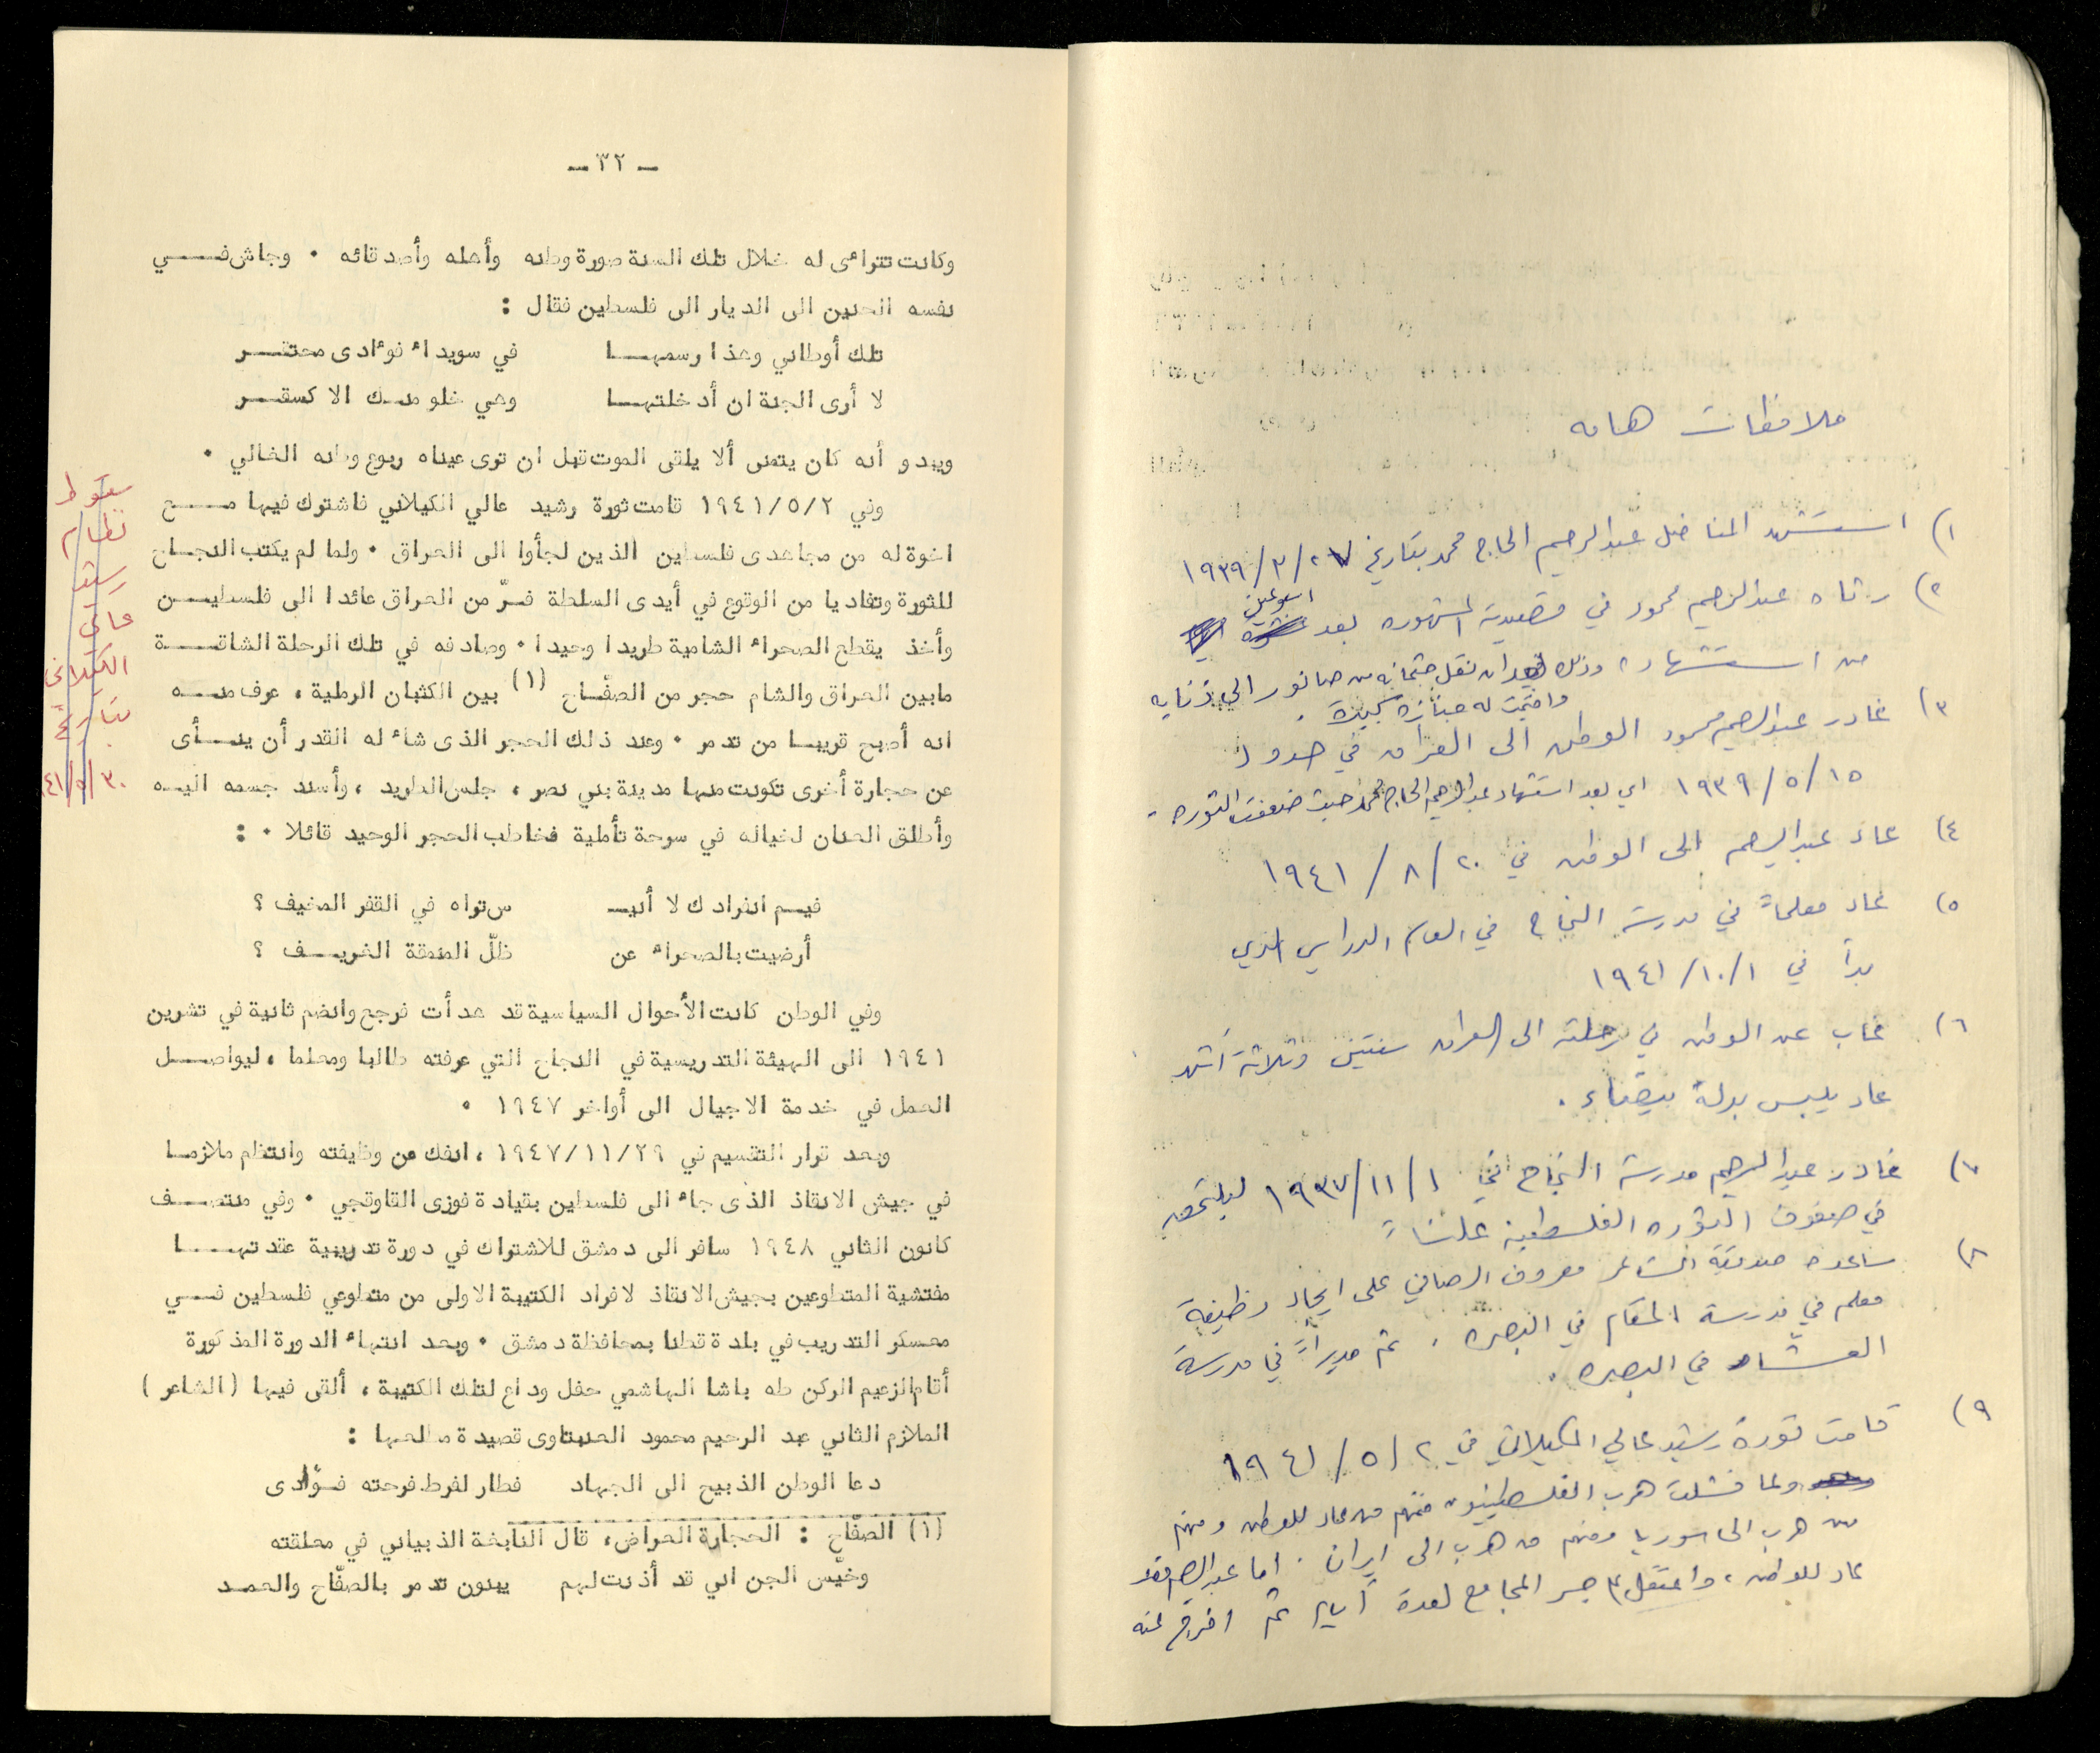 ملاحظات هامه
١) استشهد المناضل عبدالرحيم الحاج محمد بتاريخ ٢٧/٣/١٩٣٩
٢) رثاه عبدالرحيم محمود في قصيدته المشهوره بعد اسبوعين
من استشهاده وذلك بعد ان نقل جثمانه من صانور الى ذنابه
واقيمت له جنازه كبيرة .
٣) غادر عبدالرحيم محمود الوطن الى العراق في حدود
١٥/٥/١٩٣٩ اي بعد استشهاد عبدالرحيم الحاج محمد حيث ضعفت الثوره .
٤) عاد عبدالرحيم الى الوطن في ٢٠/٨/١٩٤١
٥) عاد معلماً في مدرسة النجاح في العام الدراسي الذي
بدأ في ١/١٠/١٩٤١
٦) غاب عن الوطن في رحلته الى العراق سنتين وثلاثة أشهر
عاد يلبس بدلة بيضاء .
٧) غادر عبدالرحيم مدرسة النجاح في ١/١١/١٩٣٧ ليلتحق
في صفوف الثوره الفلسطينيه علناً
٨) ساعده صديقه الشاعر معروف الرصافي على ايجاد وظيفة
معلم في مدرسة المقام في البصره . ثم مديراً في مدرسة
العشار في البصره .
٩) قامت ثورة رشيد عالي الكيلاني في ٢/٥/١٩٤١
ولما فشلت هرب الفلسطينيون فمنهم من عاد للوطن ومنهم
من هرب الى سوريا ومنهم من هرب الى ايران . اما عبدالرحيم فقد
عاد للوطن ، واعتقل في جسر المجامع لعدة أيام ثم افرج عنه
ـ ٣٢ ـ
وكانت تتراءى له خلال تلك السنة صورة وطنه وأهله وأصدقائه . وجاش فـــي
نفسه الحنين الى الديار الى فلسطين فقال :
تلك أوطاني وهذا رسمهــا في سويداء فوءادى محتفــر
لا أرى الجنة ان أدخلتهــا وهي خلو منــك الا كسقــر
ويبدو أنه كان يتمنى ألا يلقى الموت قبل ان ترى عيناه ربوع وطنه الغالي .
وفي ١٩٤١/٥/٢ قامت ثورة رشيد عالي الكيلاني فاشترك فيها مـــع
اخوة له من مجاهدى فلسطين الذين لجأوا الى العراق . ولما لم يكتب النجــاح
للثورة وتفاديا من الوقوع في أيدى السلطة فــرّ من العراق عائدا الى فلسطيــن
وأخذ يقطع الصحراء الشامية طريدا وحيدا . وصادفه في تلك الرحلة الشاقــة
مابين العراق والشام حجر من الصفّــاح (١) بين الكثبان الرملية ، عرف منــه
انه أصبح قريبــا من تدمر . وعند ذلك الحجر الذى شاء له القدر أن ينــأى
عن حجارة أخرى تكونت منها مدينة بني نصر ، جلس الطريد ، وأسند جسمه اليــه
وأطلق العنان لخياله في سرحة تأملية فخاطب الحجر الوحيد قائلا . :
فيــم انفرادك لا أنيــ س تراه في القفر المخيف ؟
أرضيت بالصحراء عن ظلّ المنمقة الغريــف ؟
وفي الوطن كانت الأحوال السياسية قد هدأت فرجع وانضم ثانية في تشرين
١٩٤١ الى الهيئة التدريسية في النجاح التي عرفته طالبا ومعلما ، ليواصــل
العمل في خدمة الاجيال الى أواخر ١٩٤٧ .
وبعد قرار التقسيم في ١٩٤٧/١١/٢٩ ، انفك من وظيفته وانتظم ملازمــا
في جيش الانقاذ الذى جاء الى فلسطين بقيادة فوزى القاوقجي . وفي منتصــف
كانون الثاني ١٩٤٨ سافر الى دمشق للاشتراك في دورة تدريبية عقدتهــا
مفتشية المتطوعين بجيش الانقاذ لافراد الكتيبة الاولى من متطوعي فلسطين فــي
معسكر التدريب في بلدة قطنا بمحافظة دمشق . وبعد انتهاء الدورة المذكورة
أقام الزعيم الركن طه باشا الهاشمي حفل وداع لتلك الكتيبة ، ألقى فيها (الشاعر)
الملازم الثاني عبد الرحيم محمود العنبتاوى قصيدة مطلعها :
دعا الوطن الذبيح الى الجهاد فطار لفرط فرحته فــؤادى
(١) الصفّاح : الحجارة العراض ، قال النابغة الذبياني في معلقته
وخيّس الجن اني قد أذنت لهم يبنون تدمر بالصفّاح والعمــد
سقوط
نظام
رشيد
عالي
الكيلاني
بتاريخ
٣٠/٥/٤١